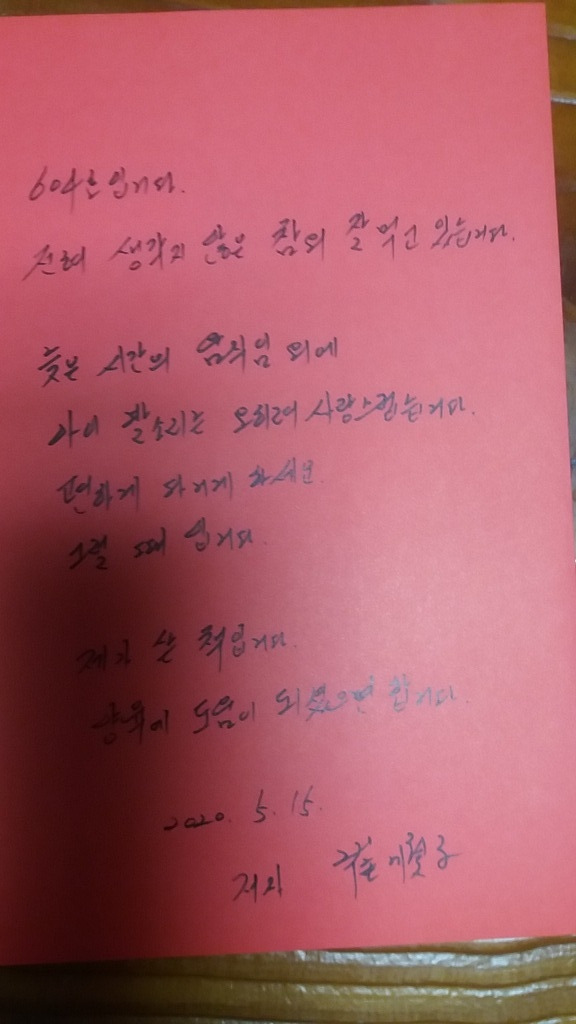 604호입니다.
전혀 생각지 않은 참외 잘 먹고 있습니다.
늦은 시간의 움직임 외에
아이 발소리는 오히려 사랑스럽습니다.
편하게 다니게 하세요.
그럴 때 입니다.
제가 쓴 책입니다.
양육에 도움이 되었으면 합니다.
2020. 5. 15.
저자